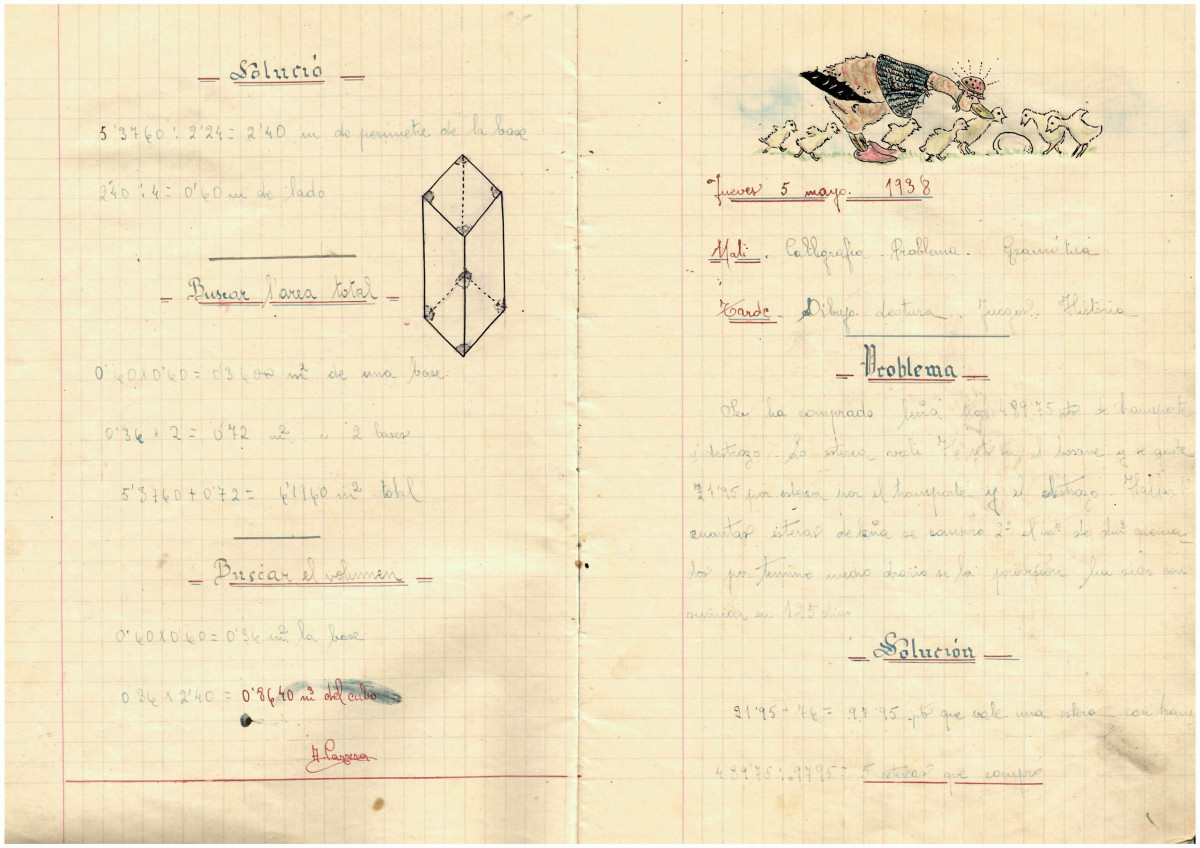 Solució
5'3760 : 2'24 = 2'40 m de perimetre de la base
2'40 : 4 = 0'60 m de lado
Buscar l'area total
0'60 x 0'60 = 0'3600 m² de una base
0'36 x 2 = 0'72 m² " 2 bases
5'3760 + 0'72 = 6'1160 m² total
Buscar el volumen
0'60 x 0'60 = 0'36 m² la base
0'36 x 2'40 = 0'8640 m³ del cubo
Jueves 5 mayo. 1938
Mati. Calligrafia. Problema. Gramática
Tarde. Dibujo. Lectura. Juegos. História
Problema
Se ha comprado leña por 489'75 pts de transporte
y destrozo. La esterea vale el bosque y se gasta
21'95 por esterea por el transporte y el destrozo. Hallar
cuantas estereas de leña se 2º el nº de quema
dos por termino medio diario si la provision ha sido con
en 125 dias
Solución
21'95 + 76 = 97'95 pts que vale una esterea con trans
489'75 : 97'95 = 5 estereas que compro